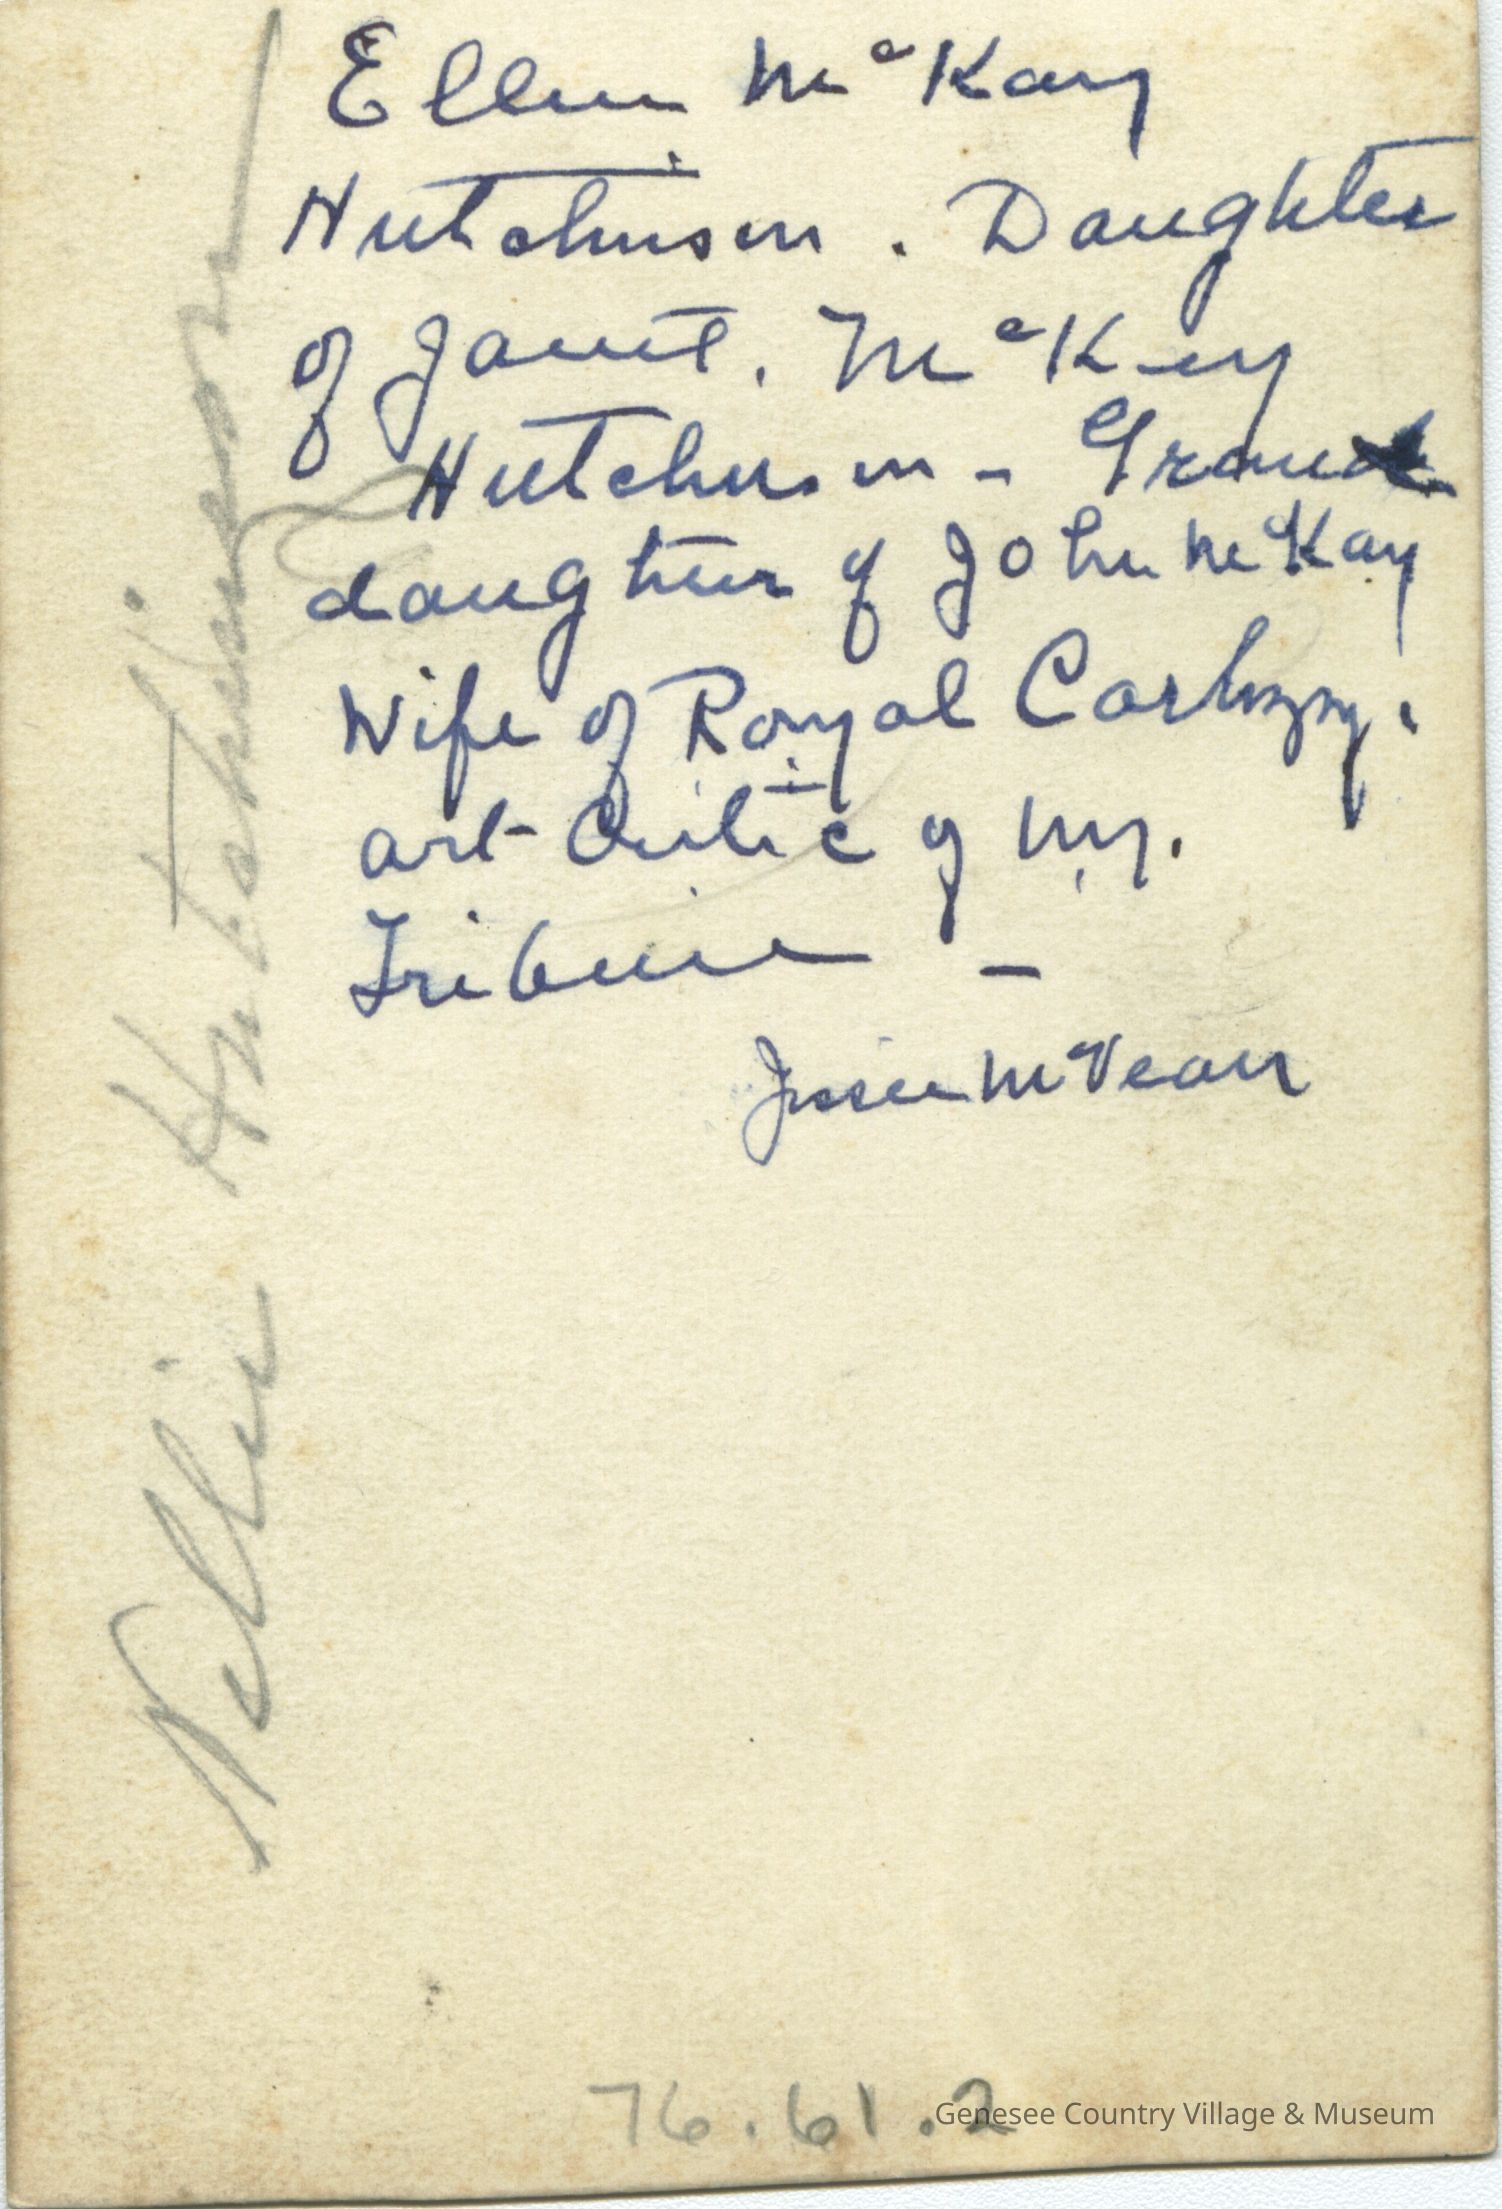 Ellen McKay
Hutchinson. Daughter
of Janet. McKey
Hutchinson - Grand
daughter of John McKay
Wife of Royal Cortizzy.
art Critic of N.Y.
Tribune -
Jessie McVean
Nellie Hutchinson
76.61.2
Genesee Country Village & Museum